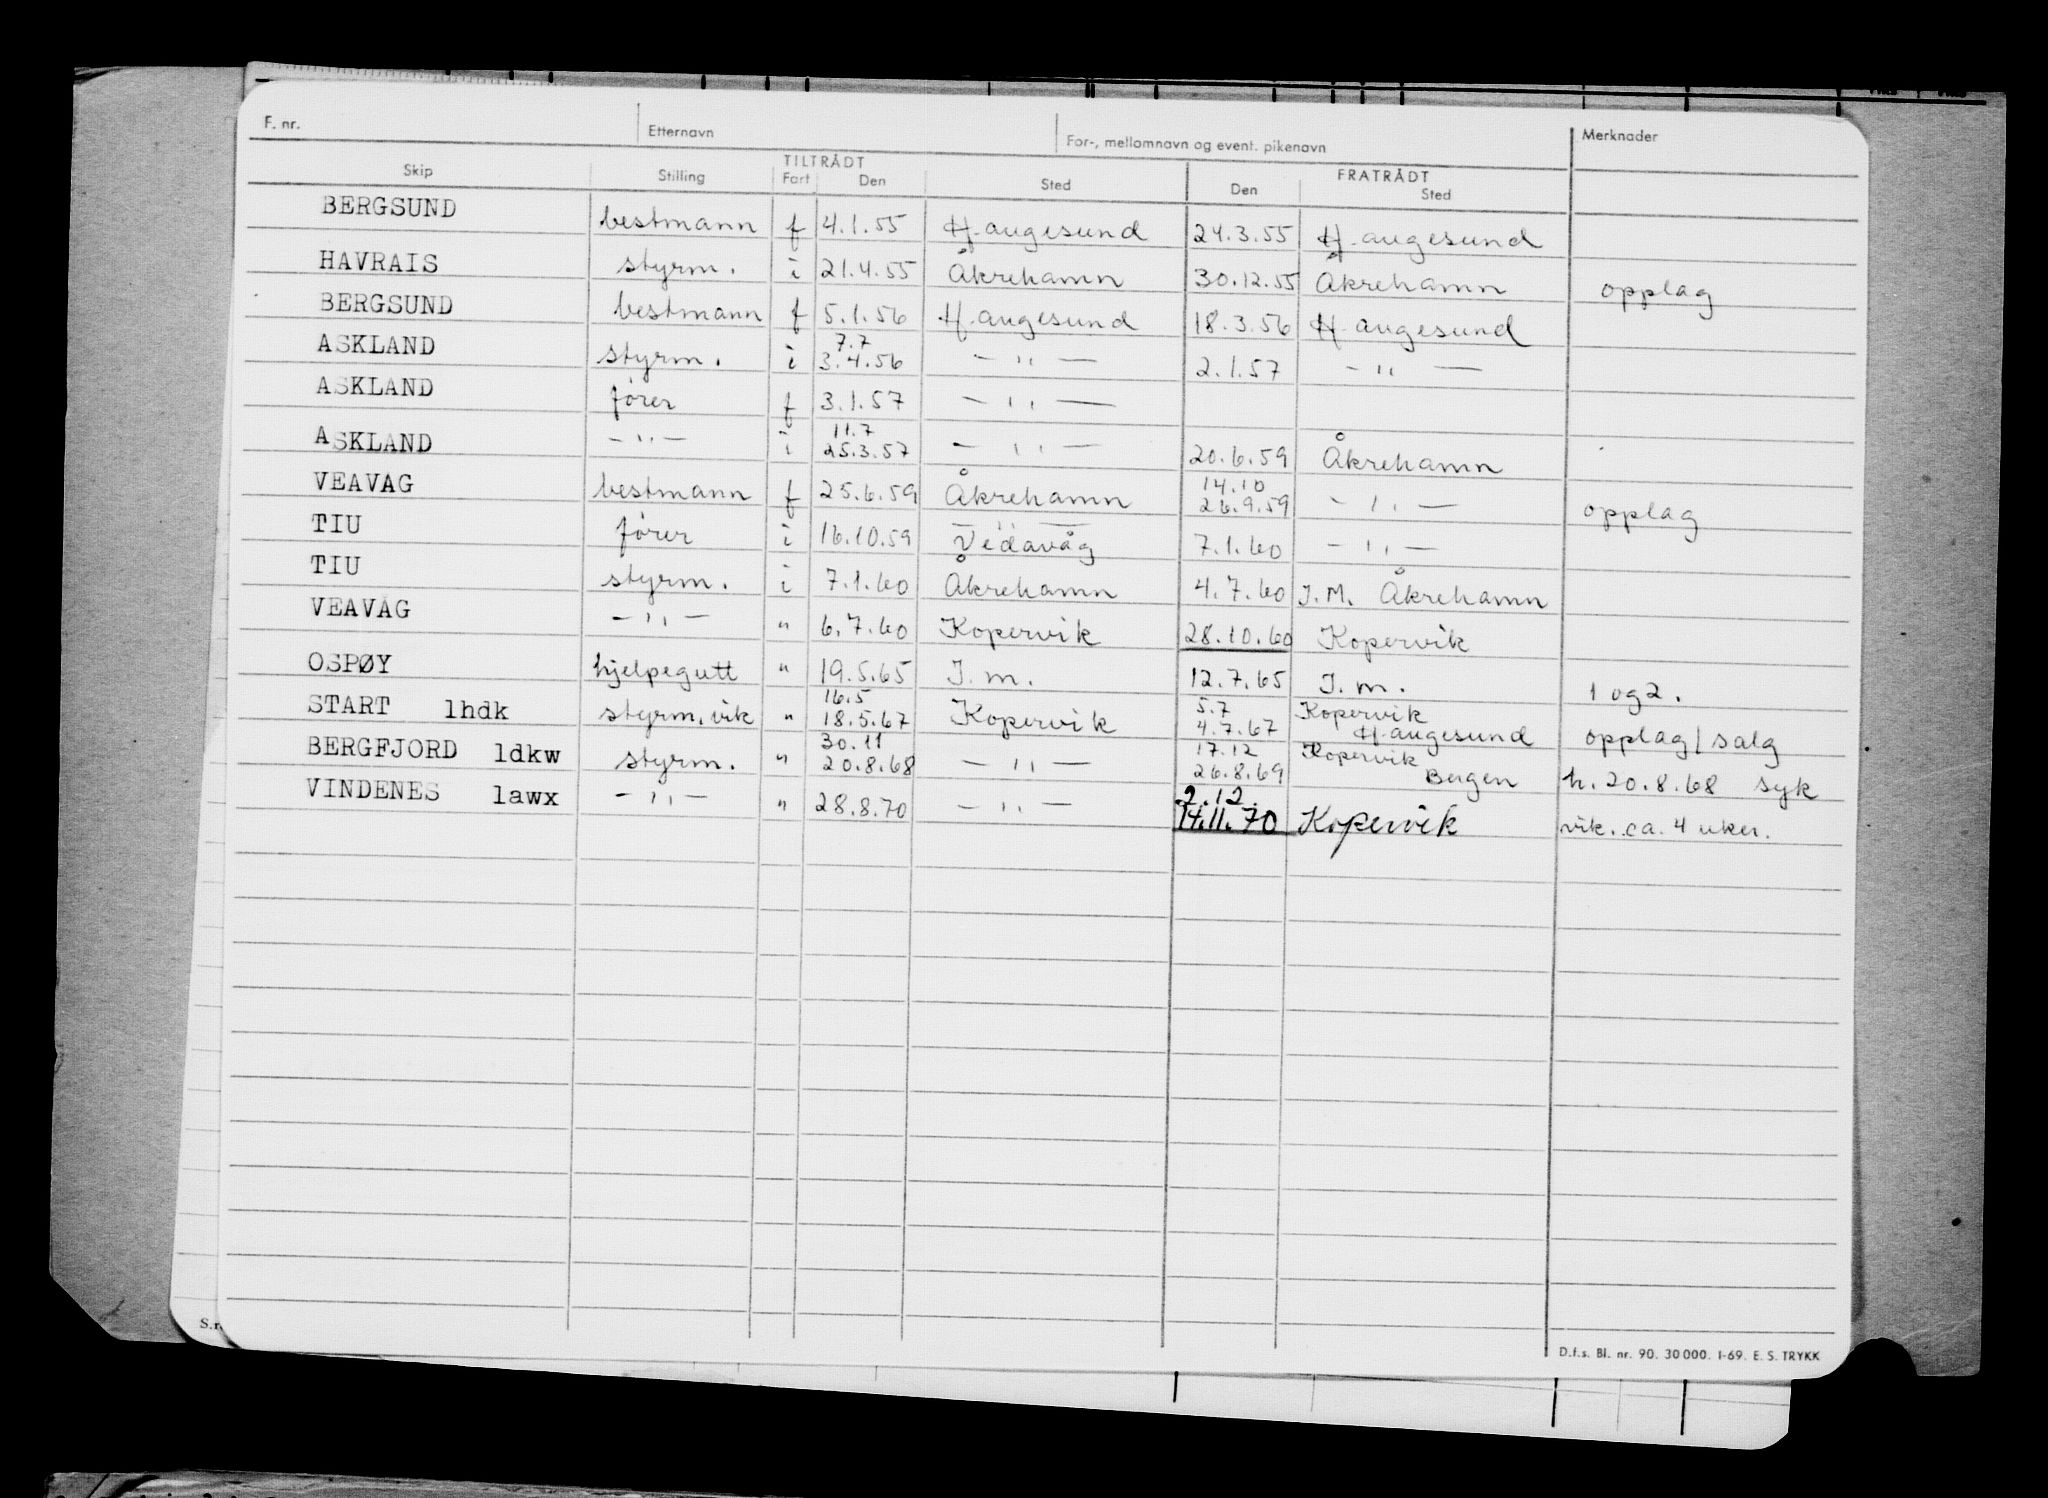 F. nr. Etternavn For-, mellomnavn og event. pikenavn Merknader
TILTRÅDT FRATRÅDT
Skip Stilling Fart Den Sted Den Sted
BERGSUND bestmann f 4.1.55 Haugesund 24.3.55 Haugesund
HAVRAIS styrm. i 21.4.55 Åkrehamn 30.12.55 Åkrehamn opplag
BERGSUND bestmann f 5.1.56 Haugesund 18.3.56 Haugesund
7.7
ASKLAND styrm. i 3.4.56 — " — 2.1.57 — " —
ASKLAND fører f 3.1.57 — " —
11.7
ASKLAND — " — i 25.3.57 — " — 20.6.59 Åkrehamn
14.10
VEAVÅG bestmann f 25.6.59 Åkrehamn 26.9.59 — " — opplag
TIU fører i 16.10.59 — " — Vedavåg 7.1.60 — " —
TIU styrm. i 7.1.60 Åkrehamn 4.7.60 I.M. Åkrehamn
VEAVÅG — " — " 6.7.60 Kopervik 28.10.60 Kopervik
OSPØY hjelpegutt " 19.5.65 I.m. 12.7.65 I.m. 1 og 2.
16.5 5.7 Kopervik
START lhdk styrm. vik " 18.5.67 Kopervik 4.7.67 Haugesund opplag/salg
30.11 17.12 Kopervik
BERGFJORD ldkw styrm. " 20.8.68 — " — 26.8.69 Bergen h. 20.8.68 syk
2.12.
VINDENES lawx — " — " 28.8.70 — " — 14.11.70 Kopervik vik. ca. 4 uker.
S.r
D.f.s. Bl. nr. 90. 30 000. 1-69. E. S. TRYKK